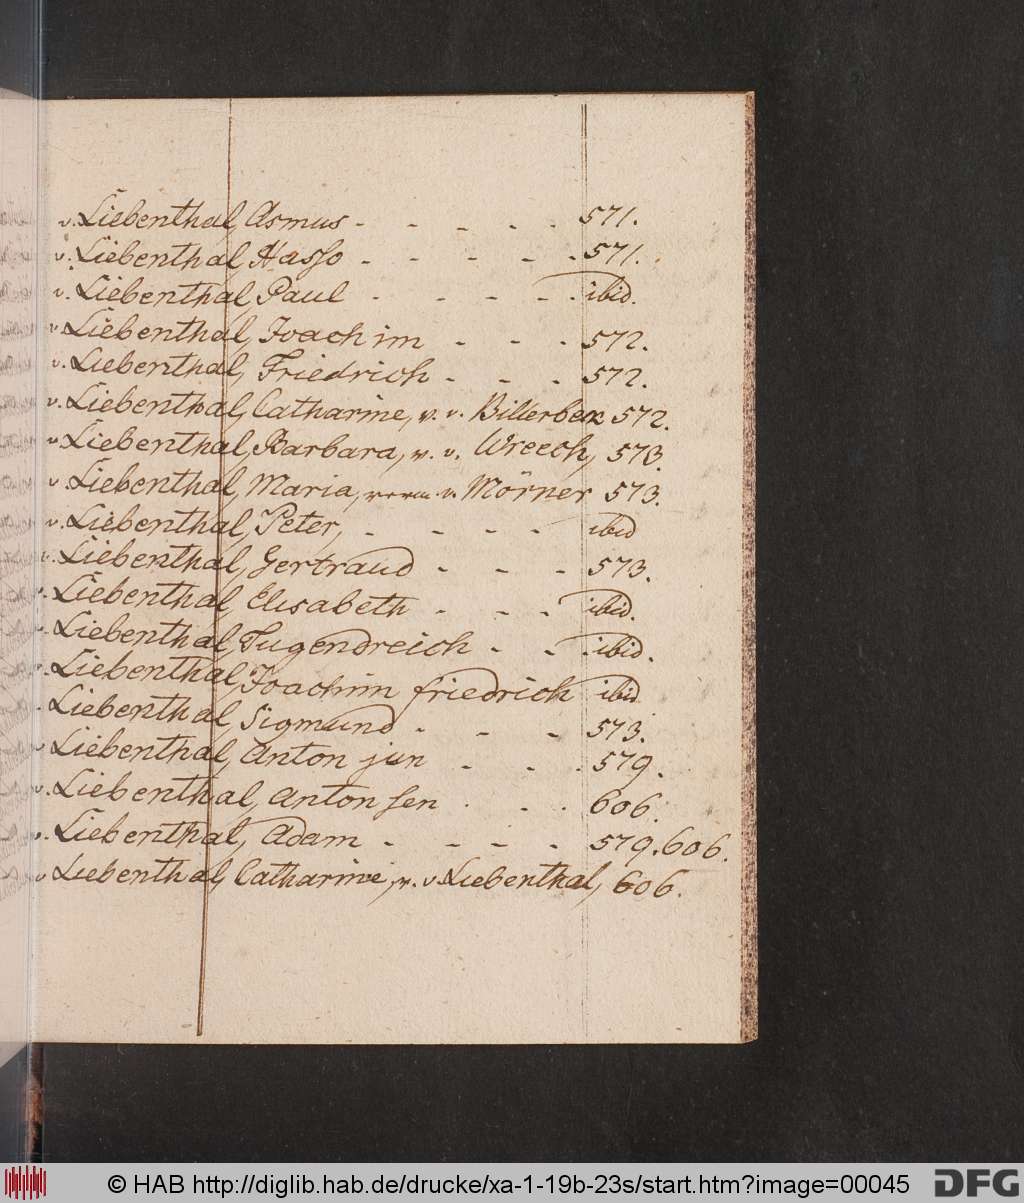 v. Liebenthal, Asmus - - - - - 571.
v. Liebenthal, Hasso - - - - - 571.
v. Liebenthal, Paul - - - - - ibid.
v. Liebenthal, Joachim - - - 572.
v. Liebenthal, Friedrich - - - 572.
v. Liebenthal, Catharine, v. v. Billerbek 572.
v. Liebenthal, Barbara, v. v. Wreech, 573.
v. Liebenthal, Maria, v. Mörner 573.
v. Liebenthal, Peter, - - - - ibid
v. Liebenthal, Gertraud - - - 573.
v. Liebenthal, Elisabeth - - - ibid.
v. Liebenthal, Tugendreich - - ibid.
v. Liebenthal, Joachim friedrich ibid
v. Liebenthal, Sigmund - - - 573.
v. Liebenthal, Anton jun - - - 579.
v. Liebenthal, Anton sen - - - 606.
v. Liebenthal, Adam - - - - 579.606.
v. Liebenthal, Catharine, v. v. Liebenthal, 606.
© HAB http://diglib.hab.de/drucke/xa-1-19b-23s/start.htm?image=00045
DFG